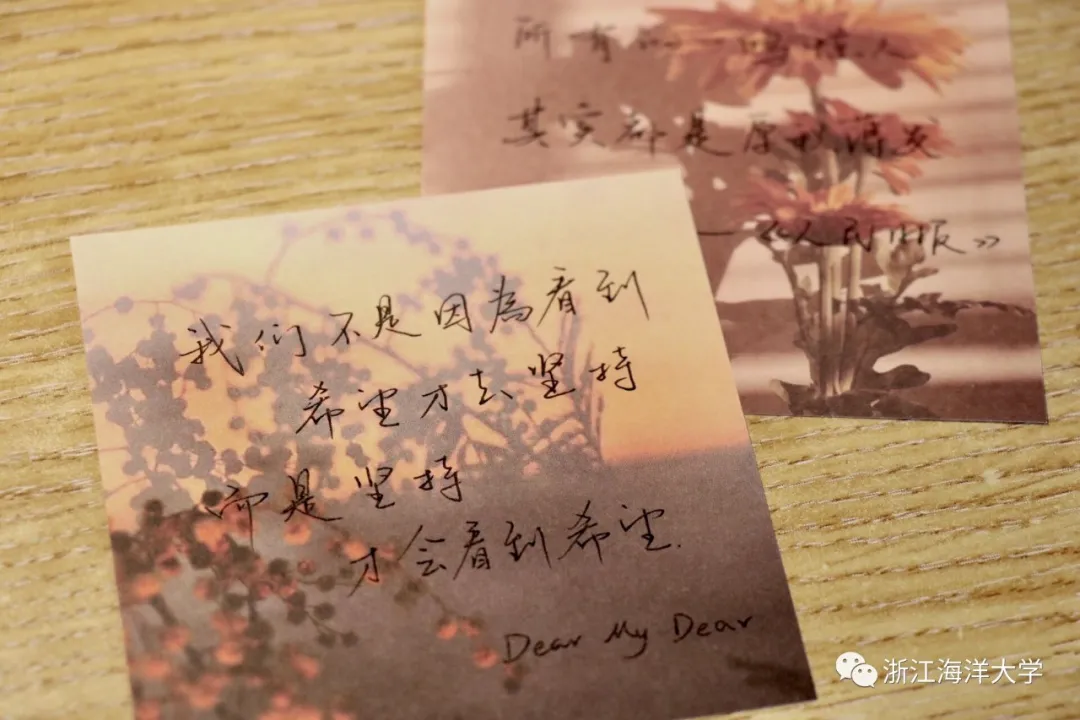 所有
其实都是厚积薄发
—《人民日报》
我们不是因為看到
希望才去坚持
而是坚持
才会看到希望.
Dear My Dear
浙江海洋大学